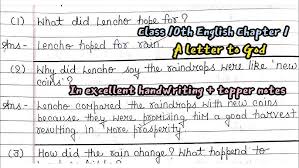 (1) What did Lencho hope for?
Class 10th English Chapter 1
Ans - Lencho hoped for rain.
A letter to God
(2) Why did Lencho say the raindrops were like 'new
coins'?
In excellent handwriting + topper notes
Ans - Lencho compared the raindrops with new coins
because they were promising him a good harvest
resulting in "more prosperity".
(3) How did the rain change? What happened to